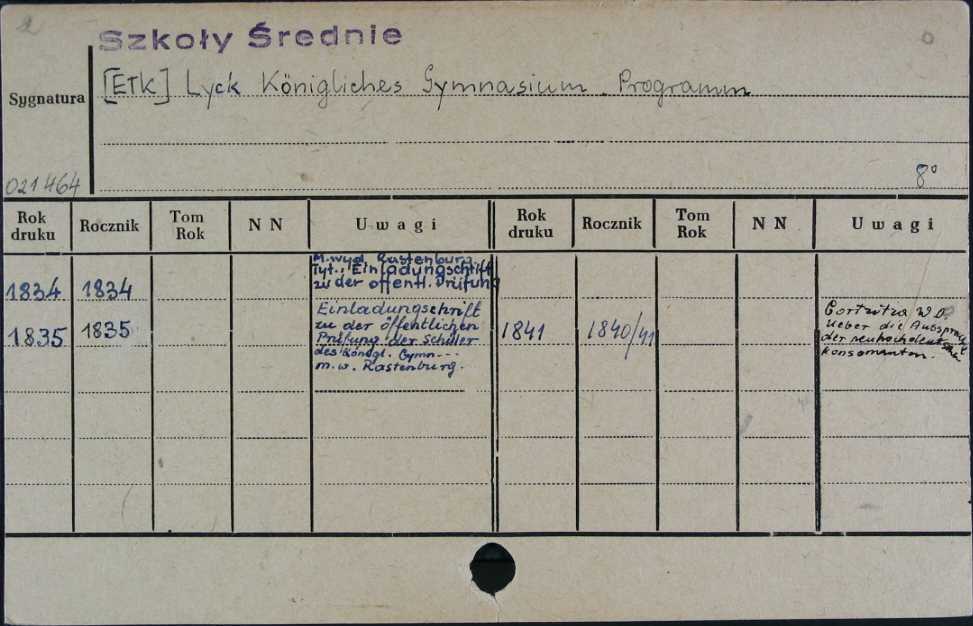 Szkoły Średnie
Sygnatura
[EŁK] Lyck Königliches Gymnasium. Programm
021464
8°
Rok druku Rocznik Tom Rok N N Uwagi Rok druku Rocznik Tom Rok N N Uwagi
1834 1834
M. wyd. Rastenburg.
Tyt.: Einladungschrift
zu der öffentl. Prüfung
1835 1835
Einladungschrift
zu der öffentlichen
Prüfung der Schüler
des Königl. Gymn---
m.w. Rastenburg.
1841 1840/41
Ueber die Aussprache
der neuhochdeutschen
Konsonanten.